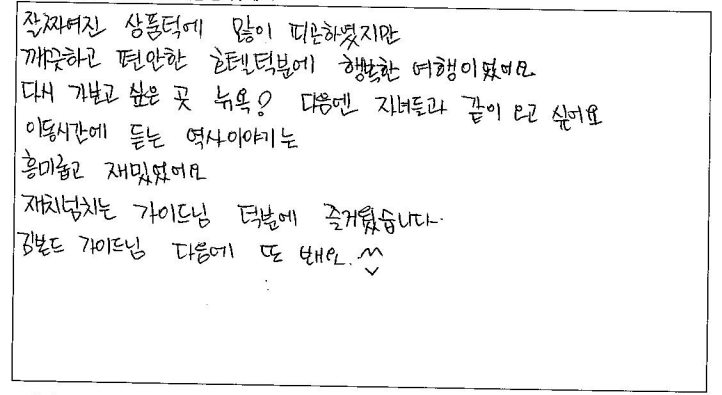 잘짜여진 상품덕에 많이 피곤하였지만
깨끗하고 편안한 호텔덕분에 행복한 여행이였어요
다시 가보고 싶은 곳 뉴욕? 다음엔 자녀들과 같이 오고 싶어요
이동시간에 듣는 역사이야기는
흥미롭고 재밌었어요
재치넘치는 가이드님 덕분에 즐거웠습니다.
김본드 가이드님 다음에 또 봬요. ^^